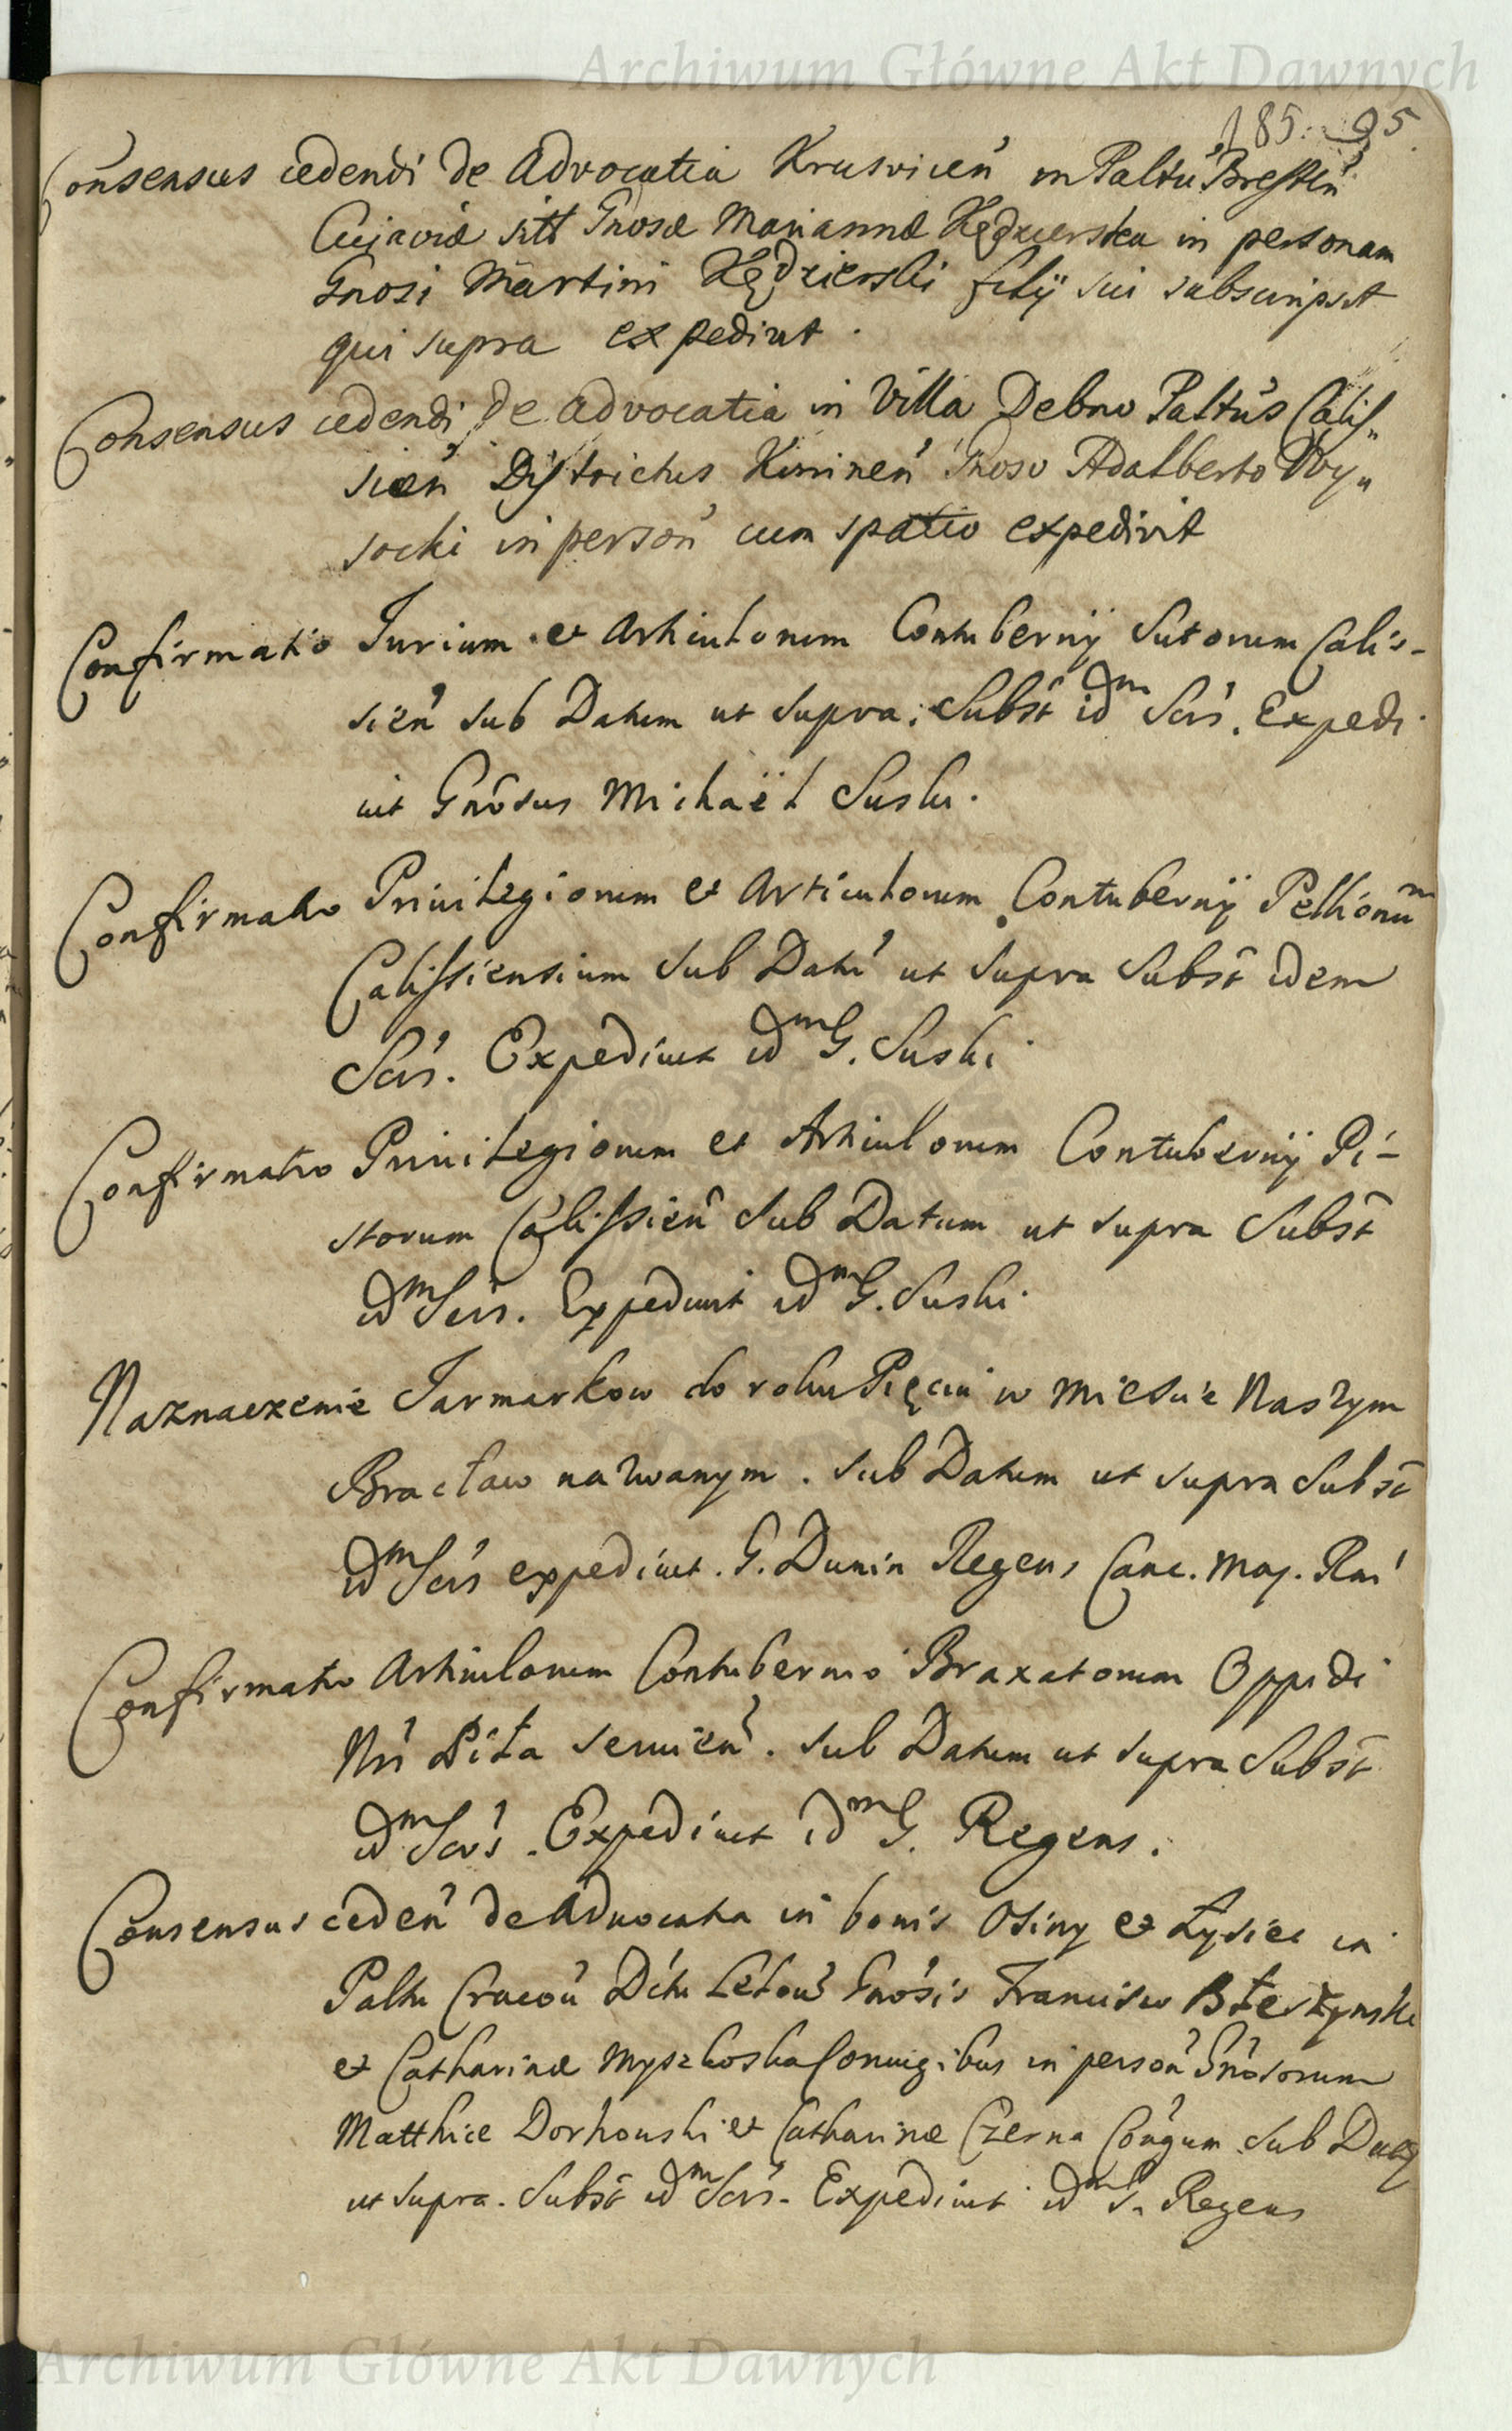 Archiwum Główne Akt Dawnych
185. 95.
Consensus cedendi de Advocatia Krusvicen̄ in Palt̄u Bresten̄
Cujaviæ sitt Gnosæ Mariannæ Kędzierska in personam
Gnosi Martini Kędzierski filij sui subscripsit
qui supra expedivit.
Consensus cedendi de advocatia in Villa Debno Palt̄us Calis„
sien̄ Districtus Kininen̄ Gnoso Adalberto Wy„
socki in person̄ cum spatio expedivit
Confirmatio Jurium et Articulorum Contubernij Sutorum Calis-
sien̄ sub Datum ut supra. Subst̄ idm Scrs̄. Expedi
uit Gnōsus Michaël Suski.
Confirmatio Priuilegiorum et Articulorum Contubernij Pellionum
Calissiensium sub Datū ut supra Subst̄ idem
Scrs̄. Expediuit idm G. Suski.
Confirmatio Priuilegiorum et Articulorum Contubernij Pi-
storum Calissien̄ sub Datum ut supra Subst̄
idm Scrs. Expediuit idm G. Suski.
Naznaczenie Jarmarkow do roku Pięciu w Miescie Naszym
Bracław nazwanym. sub Datum ut supra Subst̄
idm Scrs̄ expediuit. G. Dunin Regens Canc. Maj. Rni̅
Confirmatio Articulorum Contubernio Braxatorum Oppidi
Nri̅ Piła seruien̄. sub Datum ut supra Subst̄
idm Scrs̄. Expediuit idm G. Regens.
Consensus ceden̄ de Aduocatia in bonis Osiny et Łysiec in
Palt̄u Cracou̅ Dictu Lelou̅ Gnōsis Francisco Błeszynski
et Catharinæ Myszkoska Coniugibus in person̄ Gnōsorum
Matthiæ Dorhouski et Catharinæ Czerna Con̄gum sub Datt
ut supra. Subst̄ idm Scrs̄. Expediuit idm G. Regens
Archiwum Główne Akt Dawnych